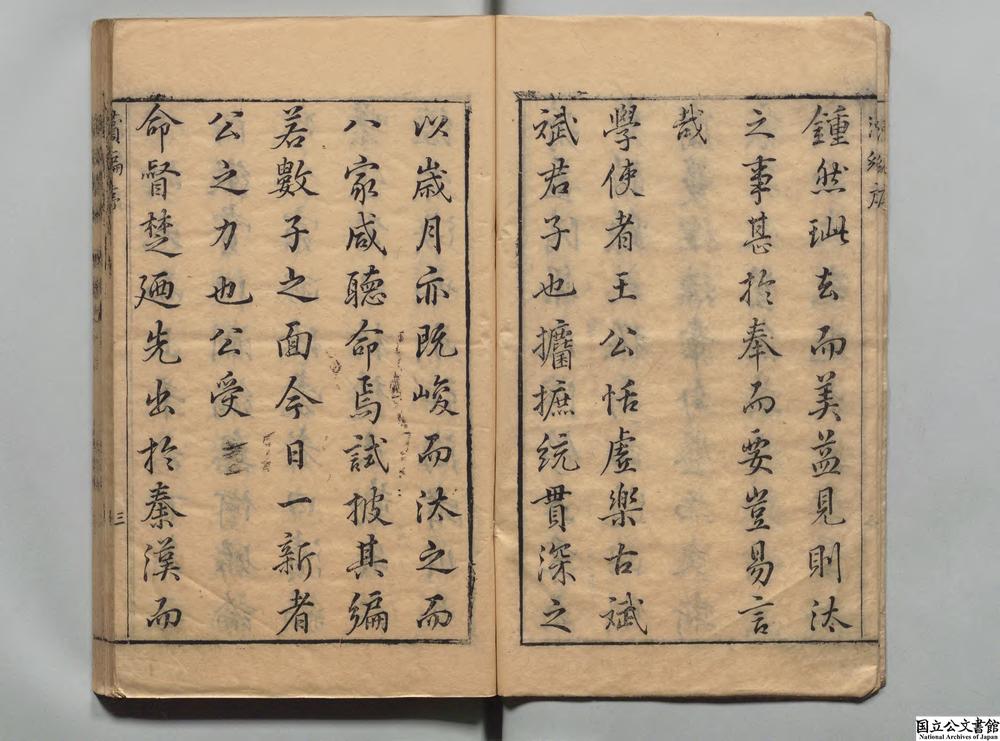 鍾然玼去而美益見則汰
之事甚於奉而要豈易言
哉
學使者王公恬虛樂古斌
斌君子也攟摭統貫深之
以歲月亦既峻而汰之而
八家咸聽命焉試披其編
若數子之面今日一新者
公之力也公受
命督楚廼先出於秦漢而
三
国立公文書館
National Archives of Japan